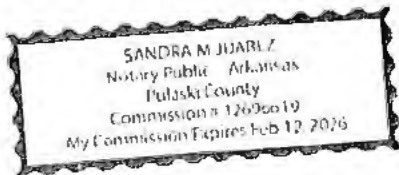 SANDRA M JUAREZ
Notary Public Arkansas
Pulaski County
Commission #
My Commission Expires Feb 12, 2026